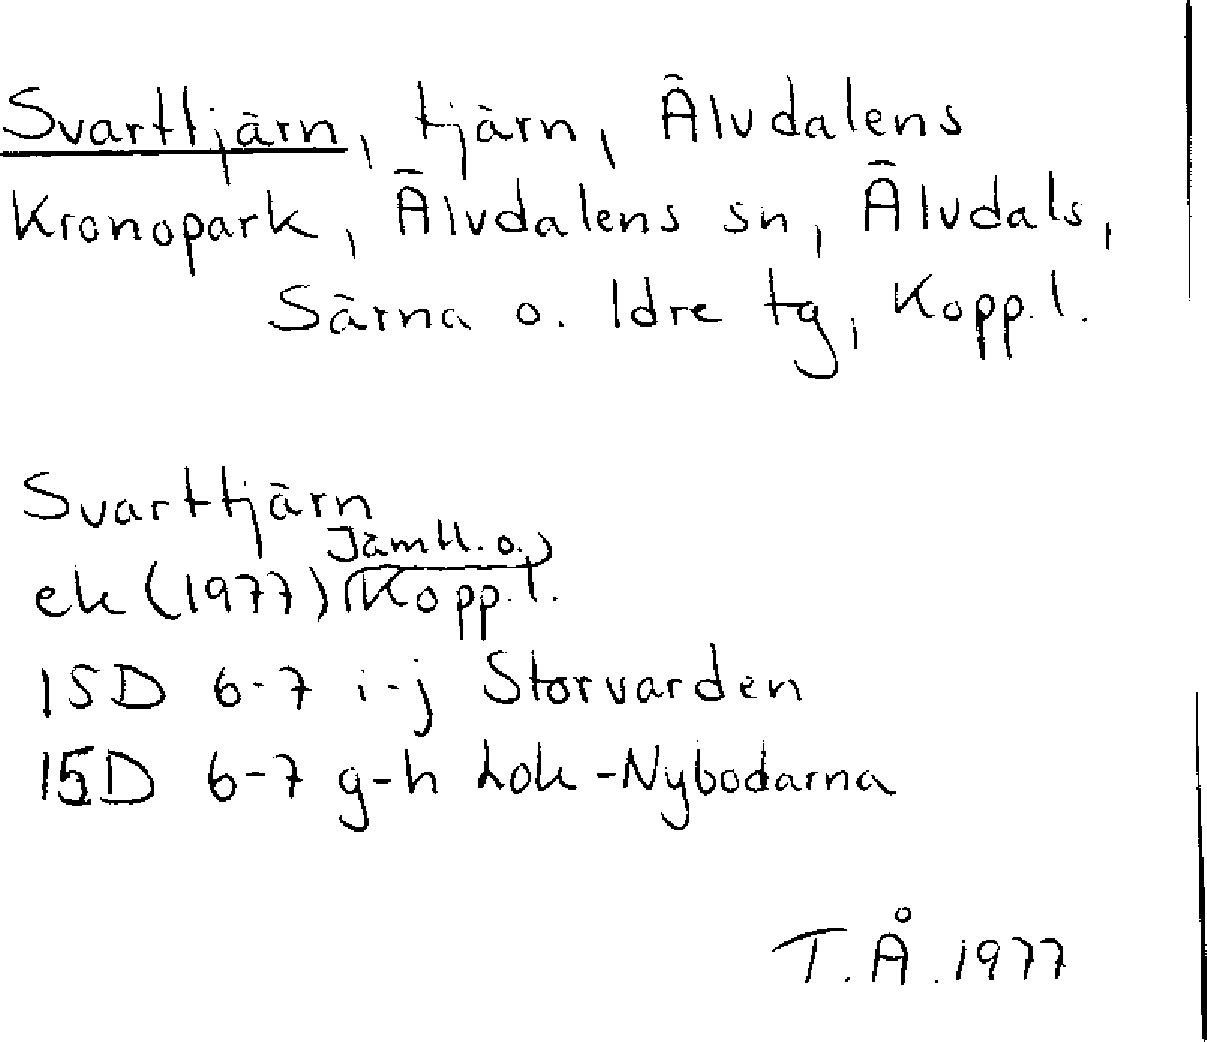 Svarttjärn, tjärn, Älvdalens
Kronopark, Älvdalens sn, Älvdals,
Särna o. Idre tg, Kopp. l.
Svarttjärn
Jämtl. o.
ek (1977) Kopp. l.
15D 6-7 i-j Storvarden
15D 6-7 g-h Lok-Nybodarna
T.Å. 1977